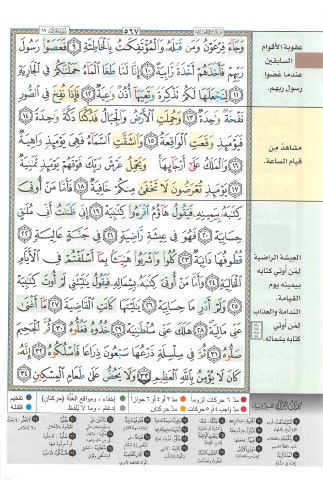 ٥٦٧
وَجَآءَ فِرْعَوْنُ وَمَن قَبْلَهُۥ وَٱلْمُؤْتَفِكَٰتُ بِٱلْخَاطِئَةِ ٩ فَعَصَوْا۟ رَسُولَ
رَبِّهِمْ فَأَخَذَهُمْ أَخْذَةً رَّابِيَةً ١٠ إِنَّا لَمَّا طَغَا ٱلْمَآءُ حَمَلْنَٰكُمْ فِى ٱلْجَارِيَةِ
١١ لِنَجْعَلَهَا لَكُمْ تَذْكِرَةً وَتَعِيَهَآ أُذُنٌ وَٰعِيَةٌ ١٢ فَإِذَا نُفِخَ فِى ٱلصُّورِ
نَفْخَةٌ وَٰحِدَةٌ ١٣ وَحُمِلَتِ ٱلْأَرْضُ وَٱلْجِبَالُ فَدُكَّتَا دَكَّةً وَٰحِدَةً ١٤
فَيَوْمَئِذٍ وَقَعَتِ ٱلْوَاقِعَةُ ١٥ وَٱنشَقَّتِ ٱلسَّمَآءُ فَهِىَ يَوْمَئِذٍ وَاهِيَةٌ
١٦ وَٱلْمَلَكُ عَلَىٰٓ أَرْجَآئِهَا وَيَحْمِلُ عَرْشَ رَبِّكَ فَوْقَهُمْ يَوْمَئِذٍ ثَمَٰنِيَةٌ
١٧ يَوْمَئِذٍ تُعْرَضُونَ لَا تَخْفَىٰ مِنكُمْ خَافِيَةٌ ١٨ فَأَمَّا مَنْ أُوتِىَ
كِتَٰبَهُۥ بِيَمِينِهِۦ فَيَقُولُ هَآؤُمُ ٱقْرَءُوا۟ كِتَٰبِيَهْ ١٩ إِنِّى ظَنَنتُ أَنِّى مُلَٰقٍ
حِسَابِيَهْ ٢٠ فَهُوَ فِى عِيشَةٍ رَّاضِيَةٍ ٢١ فِى جَنَّةٍ عَالِيَةٍ ٢٢
قُطُوفُهَا دَانِيَةٌ ٢٣ كُلُوا۟ وَٱشْرَبُوا۟ هَنِيٓـًٔۢا بِمَآ أَسْلَفْتُمْ فِى ٱلْأَيَّامِ
ٱلْخَالِيَةِ ٢٤ وَأَمَّا مَنْ أُوتِىَ كِتَٰبَهُۥ بِشِمَالِهِۦ فَيَقُولُ يَٰلَيْتَنِى لَمْ أُوتَ كِتَٰبِيَهْ
٢٥ وَلَمْ أَدْرِ مَا حِسَابِيَهْ ٢٦ يَٰلَيْتَهَا كَانَتِ ٱلْقَاضِيَةَ ٢٧ مَآ أَغْنَىٰ
عَنِّى مَالِيَهْ ٢٨ هَلَكَ عَنِّى سُلْطَٰنِيَهْ ٢٩ خُذُوهُ فَغُلُّوهُ ٣٠ ثُمَّ ٱلْجَحِيمَ
صَلُّوهُ ٣١ ثُمَّ فِى سِلْسِلَةٍ ذَرْعُهَا سَبْعُونَ ذِرَاعًا فَٱسْلُكُوهُ ٣٢ إِنَّهُۥ
كَانَ لَا يُؤْمِنُ بِٱللَّهِ ٱلْعَظِيمِ ٣٣ وَلَا يَحُضُّ عَلَىٰ طَعَامِ ٱلْمِسْكِينِ ٣٤
عقوبة الأقوام
السابقين
عندما عَصَوا
رسول ربهم.
مشاهدُ مِن
قيام الساعة.
العيشة الراضية
لِمَن أُوتي كتابه
بيمينه يوم
القيامة.
الندامة والعذاب
لِمَن أُوتي
كتابه بشماله.
مدّ ٦ حركات لزوماً
مدّ ٢ أو ٤ أو ٦ جوازاً
إخفاء، ومواقع الغُنَّة (حركتان)
تفخيم
مدّ واجب ٤ أو ٥ حركات
مدّ حركتان
إدغام، وما لا يُلفَظ
قلقلة